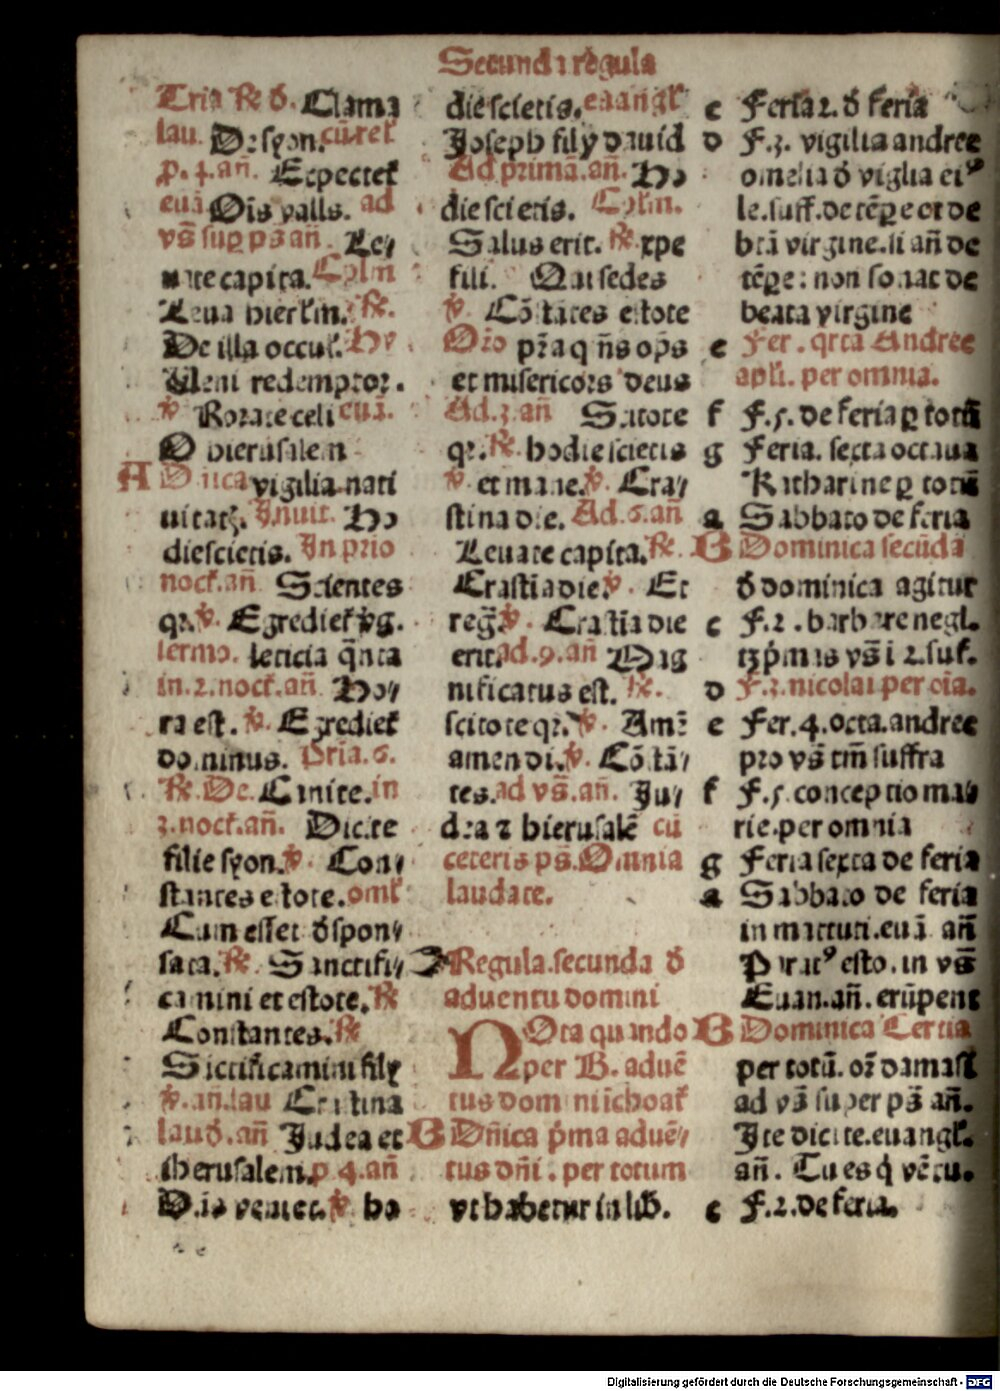 Secunda regula
Tria ℟ ð. Clama
lau. De syon. cū rel'
p. 4. añ. Expectet'
euā Oīs valls. ad
vs̄ sup ps̄ añ. Le⸗
uate capita. Cplm
Leua hierlm. ℟.
De illa occul'. Hy
Ueni redemptor.
℣ Rorate celi euā.
O hierusalem
A Dñica vigilia nati
uitatꝭ. Inuit. Ho
die scietis. In prio
noct'. añ Scientes
qꝛ. ℣. Egrediet' ṽg.
sermo. leticia q̄nta
in. 2. noct'. añ Ho⸗
ra est. ℣. Egrediet'
dominus. pria. 6.
℟. De. Canite. in
3. noct'. añ. Dicite
filie syon. ℣. Con⸗
stantes estote. oml'
Cum esset ðspon⸗
sata. ℟. Sanctifi⸗
camini et estote. ℟
Constantes. ℟
Sāctificamini filij
℣. añ. lau Crastina
laud. añ Judea et
iherusalem. p 4. añ
Dūs veniet. ℣ ho
die scietis. euangl'
Joseph fily dauid
Ad primā. añ. Ho
die scietis. Cplm.
Salus erit. ℟. xpe
fili. Qui sedes
℣. Cōstātes estote
Orō p̄sta q̄ ñs op̄s
et misericors deus
Ad. 3. añ Scitote
qꝛ. ℟. hodie scietis
℣. et mane. ℣. Cra⸗
stina die. Ad. 6. añ
Leuate capita. ℟.
Crastīa die. ℣. Et
reg̃. ℣. Crastīa die
erit. ad. 9. añ Mag
nificatus est. ℟.
scitote qꝛ. ℣. Amē
amen di. ℣. Cōstā⸗
tes. ad vs̄. añ. Ju⸗
dea ⁊ hierusalē cū
ceteris ps̄. Omnia
laudate.
Regula secunda ð
aduentu domini
NOta quando
per B. aduē
tus domini ichoat'
B Dñica p̄ma aduē⸗
tus dñi. per totum
vt habetur in lib̄.
c Feria 2. ð feria
d F. 3. vigilia andree
omelia ð viglia eiꝰ
le. suff. de tēpe et de
btā virgine. si añ de
tēpe: non sonat de
beata virgine
e Fer. qrta Andree
apli. per omnia.
f F. 5. de feria p totū
g Feria. sexta octaua
Katharine p totū
a Sabbato de feria
B Dominica secūda
ð dominica agitur
c F. 2. barbare negl.
tꝫ p̄mas vs̄ i 2. suf.
d F. 3. nicolai per oīa.
e Fer. 4. octa. andree
pro vs̄ tm̄ suffra
f F. 5. conceptio ma⸗
rie. per omnia
g Feria sexta de feria
a Sabbato de feria
in matuti. euā añ
Paratꝰ esto. in vs̄
Euan. añ. erūpent
B Dominica Tertia
per totū. oī damasc'
ad vs̄ super ps̄ añ.
Jte dicite. euangl'.
añ. Tu es q̄ vētu.
c F. 2. de feria.
Digitalisierung gefördert durch die Deutsche Forschungsgemeinschaft - DFG